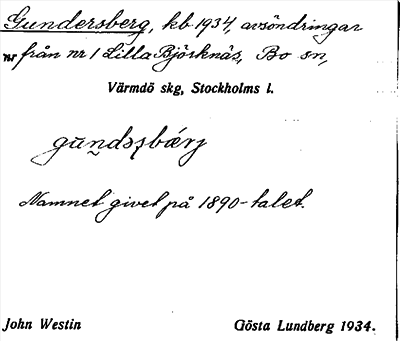 Gundersberg, kb 1934, avsöndringar
nr från nr 1 Lilla Björknäs, Bo sn,
Värmdö skg, Stockholms l.
gūndsʂbǽrj
Namnet givet på 1890-talet.
John Westin
Gösta Lundberg 1934.